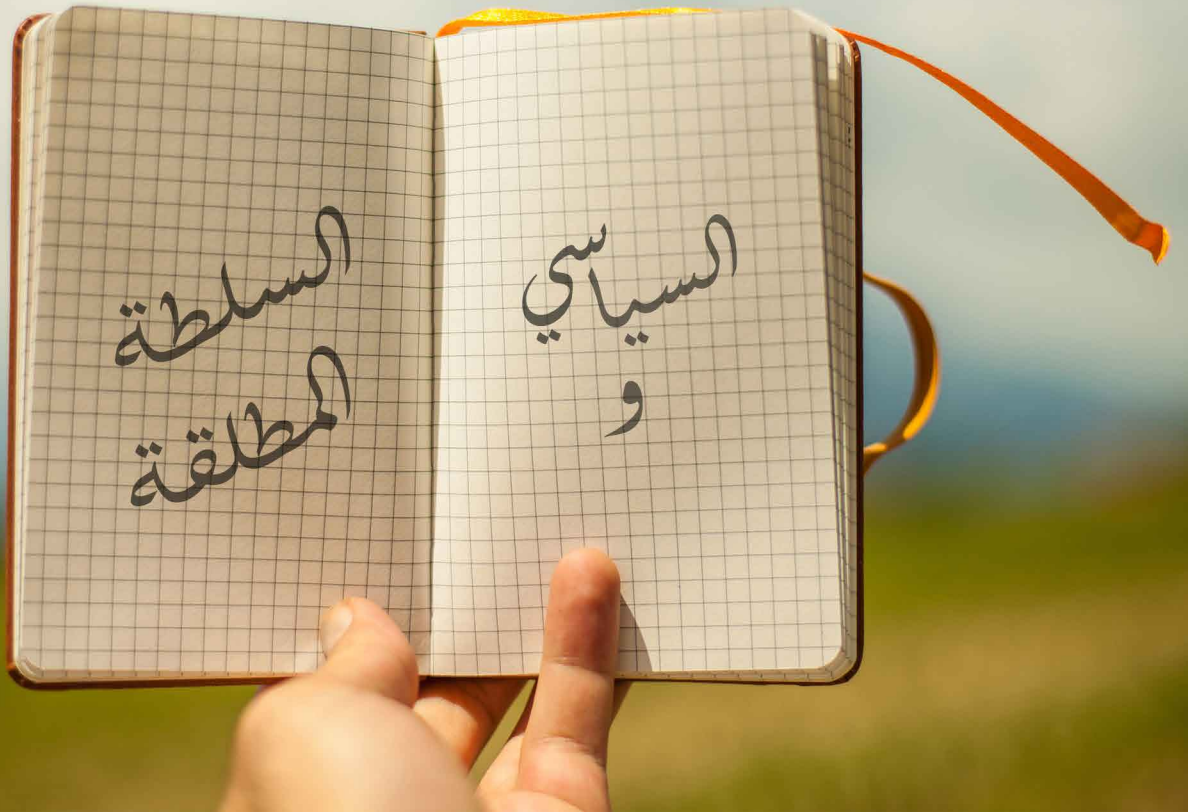 السياسي
و
السلطة
المطلقة